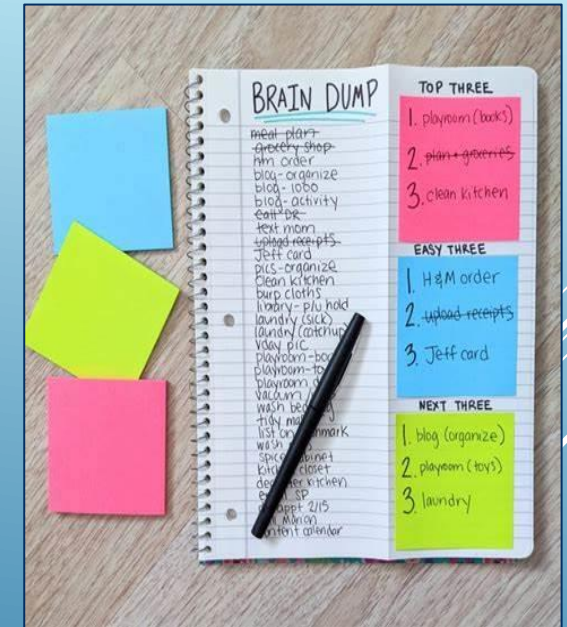 BRAIN DUMP
meal plan
grocery shop
hm order
blog-organize
blog-1000
blog-activity
call DR
text mom
upload receipts
Jeff card
pics-organize
clean kitchen
burp cloths
library-p/u hold
laundry (sick)
laundry (catchup)
vday pic
playroom-boo
playroom-to
playroom
vacuum
wash be
tidy
list on nmark
wash
spice binet
kitch closet
de er kitchen
SP
appt 2/15
Marion
ntent calendar
TOP THREE
1. playroom (books)
2. plan + groceries
3. clean kitchen
EASY THREE
1. H&M order
2. upload receipts
3. Jeff card
NEXT THREE
1. blog (organize)
2. playroom (toys)
3. laundry